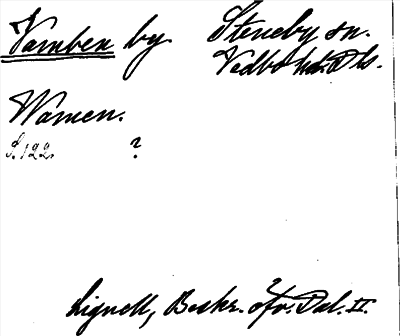 Vamben by Steneby sn.
Vedbo hd. Dls.
Wåmen.
S. 122. ?
Lignell, Beskr. öfv. Dal. II.